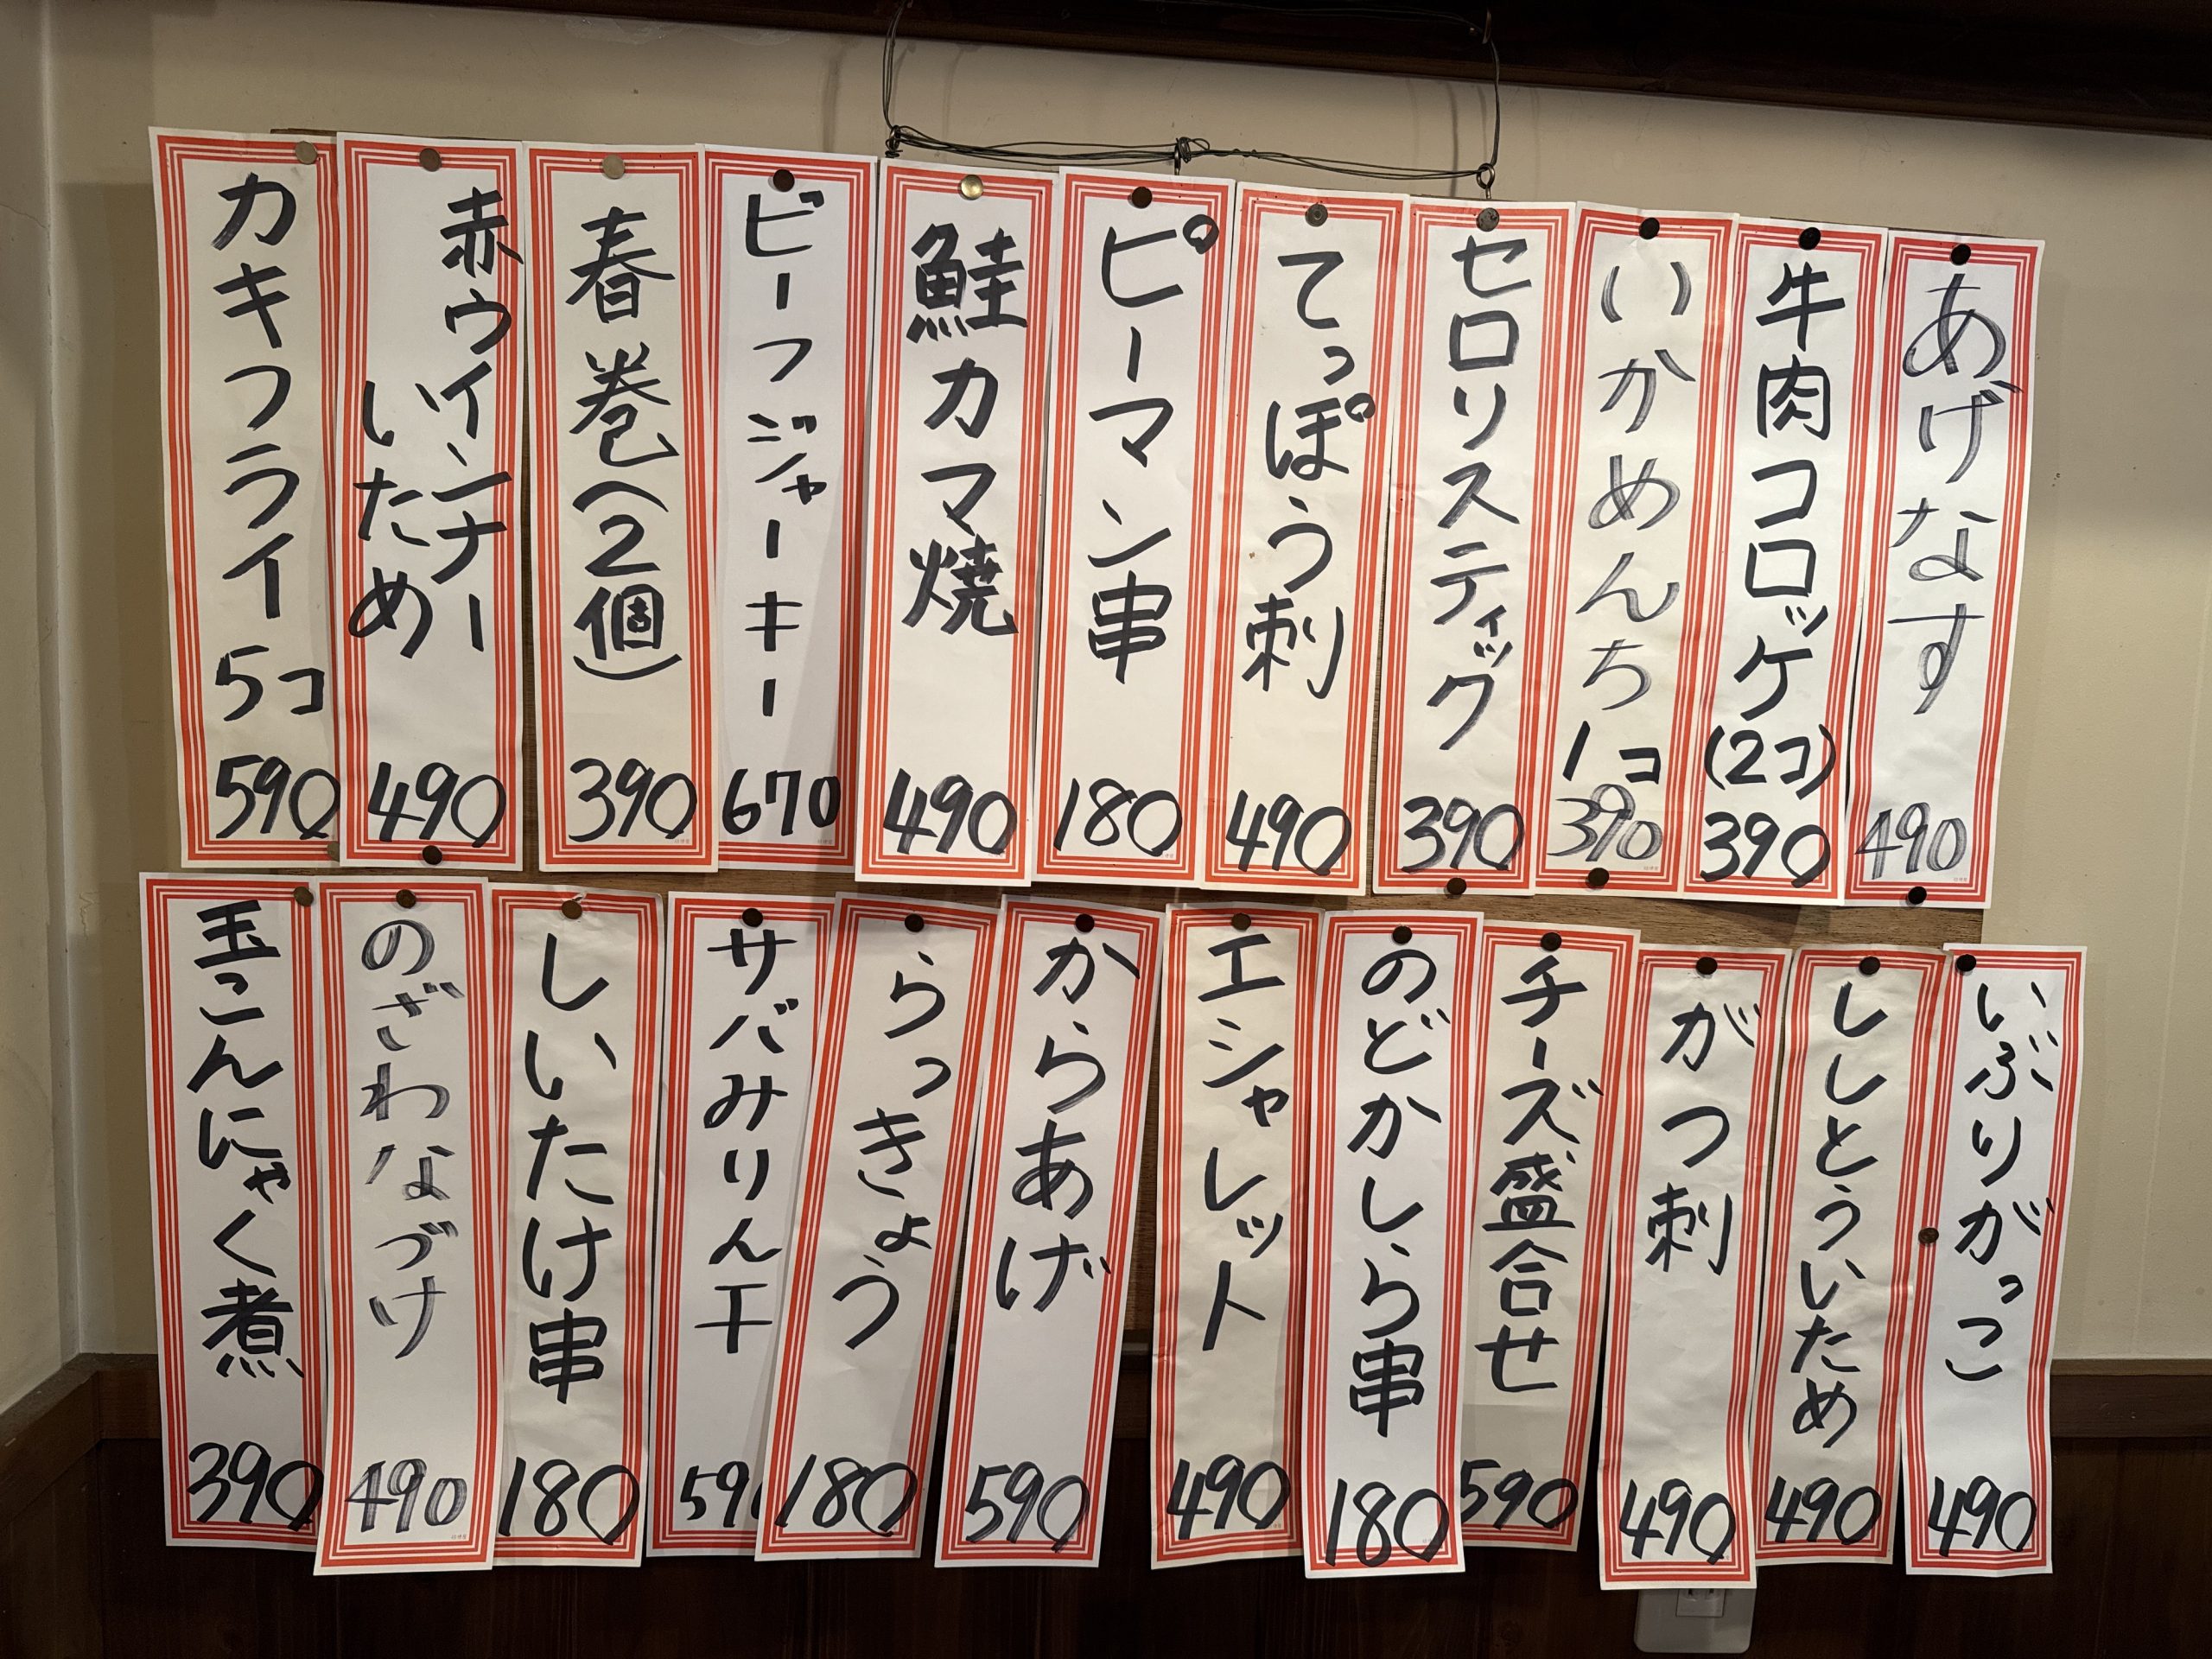 あげなす
490
牛肉コロッケ
(2コ)
390
いかめんち
1コ
390
セロリスティック
390
てっぽう刺
490
ピーマン串
180
鮭カマ焼
490
ビーフジャーキー
670
春巻(2個)
390
赤ウインナー
いため
490
カキフライ
5コ
590
いぶりがっこ
490
ししとういため
490
がつ刺
490
チーズ盛合せ
590
のどかしら串
180
エシャレット
490
からあげ
590
らっきょう
180
サバみりん干
59
しいたけ串
180
のざわなづけ
490
玉こんにゃく煮
390